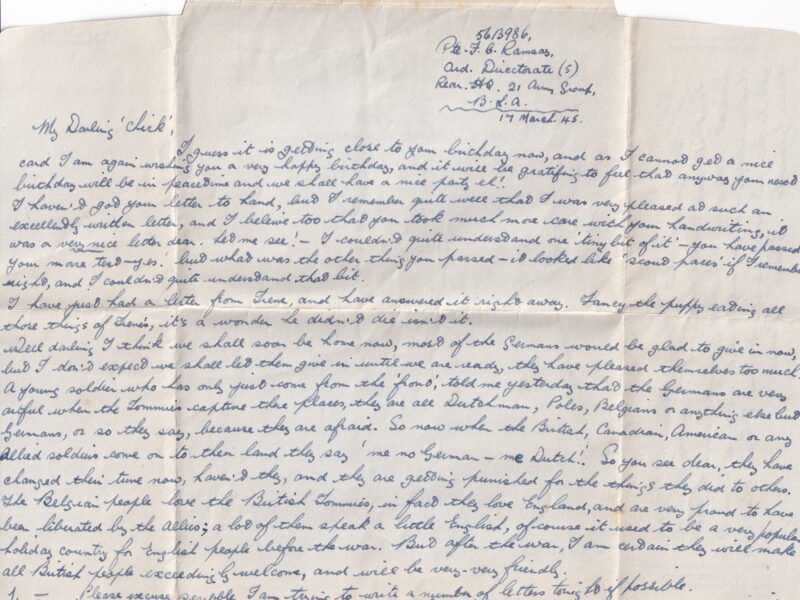 5613986,
Pte. F. C. Ramsay,
Ord. Directorate (S)
Rear. HQ. 21 Army Group,
B. L. A.
17 March. 45.
My Darling 'Chick';
I guess it is getting close to your birthday now, and as I cannot get a nice
card I am again wishing you a very happy birthday, and it will be gratifing to feel that anyway your next
birthday will be in peacetime and we shall have a nice party eh!
I haven't got your letter to hand, but I remember quite well that I was very pleased at such an
excellently written letter, and I beleive too that you took much more care with your handwriting, it
was a very nice letter dear. Let me see! - I couldn't quite understand one 'tiny bit of it' - you have passed
your morse test - yes! but what was the other thing you passed - it looked like 'scout paces' if I remember
right, and I couldn't quite understand that bit.
I have just had a letter from Irene, and have answered it right away. Fancy the puppy eating all
those things of Irene's, it's a wonder he didn't die isn't it.
Well darling I think we shall soon be home now, most of the Germans would be glad to give in now,
but I don't expect we shall let them give in until we are ready, they have pleased themselves too much.
A young soldier who has only just come from the 'front', told me yesterday that the Germans are very
artful when the Tommies capture there places, they are all Dutchman, Poles, Belgians or anything else but
Germans, or so they say, because they are afraid. So now when the British, Canadian, American or any
Allied soldiers come on to their land they say 'me no German - me Dutch'! So you see dear, they have
changed their tune now, haven't they, and they are getting punished for the things they did to others.
The Belgian people love the British Tommies, in fact they love England, and are very proud to have
been liberated by the Allies; a lot of them speak a little English, of course it used to be a very popular
holiday country for English people before the war. But after the war, I am certain they will make
all British people exceedingly welcome, and will be very-very friendly.
1. - Please excuse scribble I am trying to write a number of letters tonight if possible.